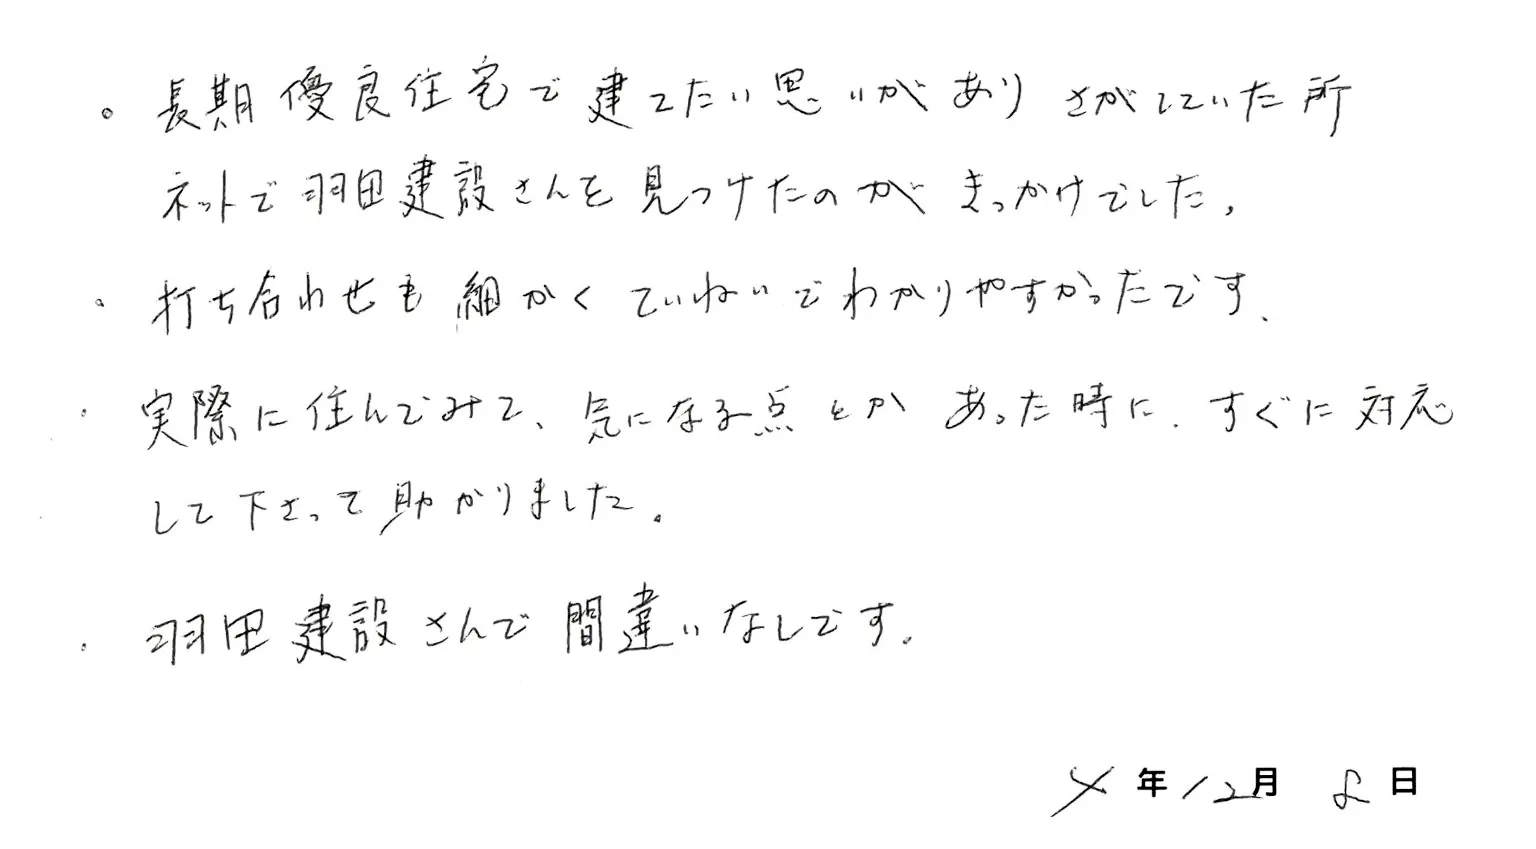 。長期優良住宅で建てたい思いがありさがしていた所
ネットで羽田建設さんを見つけたのがきっかけでした。
・打ち合わせも細かくていねいでわかりやすかったです。
・実際に住んでみて、気になる点とかあった時に、すぐに対応
して下さって助かりました。
・羽田建設さんで間違いなしです。
4年12月8日